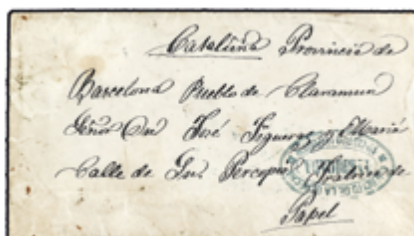 Cataluña Provincia de
Barcelona Pueblo de Claramun
Señor Don José Figueras y Mariné
Calle de Sn Fábrica de
Papel